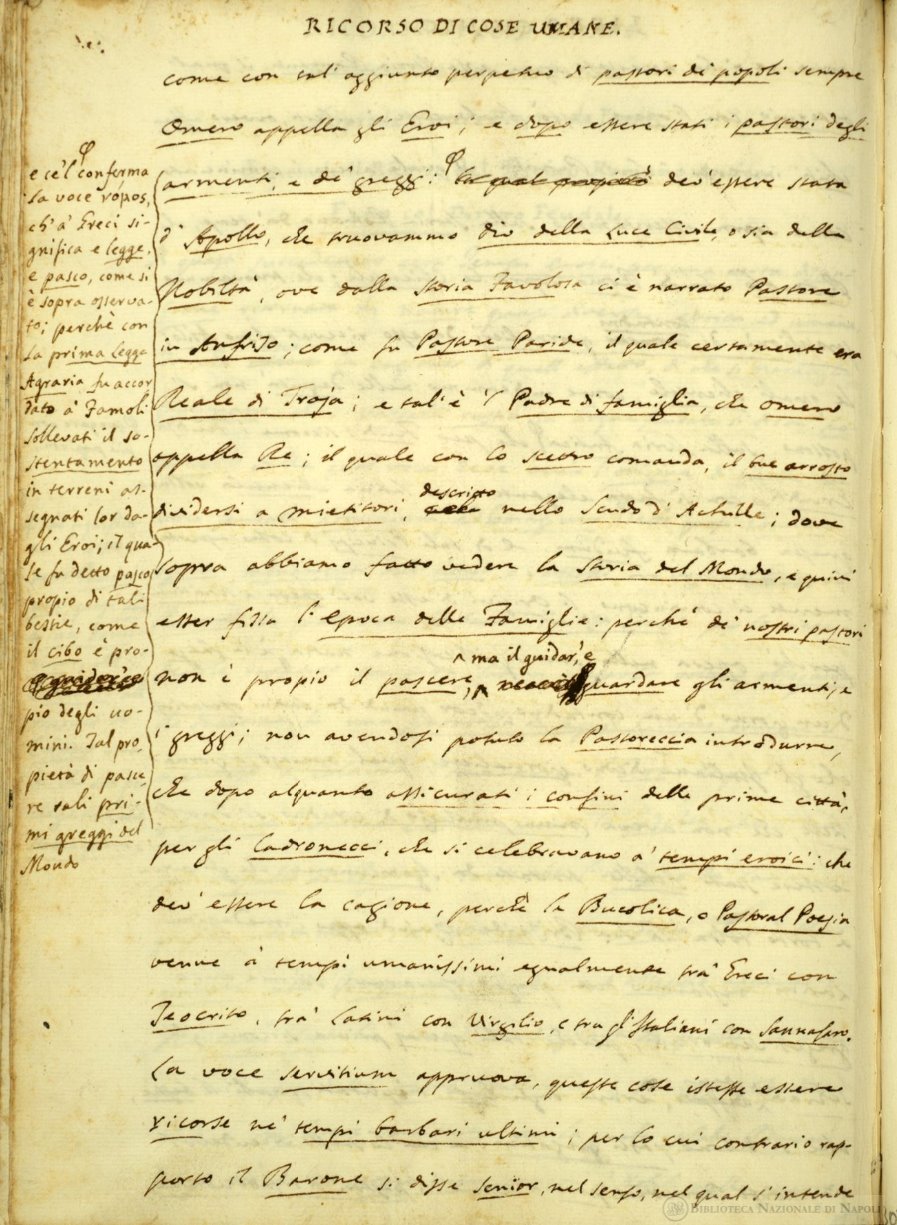 RICORSO DI COSE UMANE.
come con tal' aggiunto perpetuo di pastori de' popoli sempre
Omero appella gli Eroi; e dopo essere stati i pastori degli
armenti, e de' greggi: la qual propietà dev' essere stata
d' Apollo, che truovammo dio della Luce Civile, o sia della
Nobiltà, ove dalla Storia Favolosa ci è narrato Pastore
in Anfriso; come fu Pastore Paride, il quale certamente era
Reale di Troja; e tal' è 'l Padre di famiglia, che Omero
appella Re; il quale con lo scettro comanda, il bue arrosto
dividersi a mietitori, descritto nello Scudo d' Achille; dove
sopra abbiamo fatto vedere la Storia del Mondo, e quivi
esser fissa l' epoca delle Famiglie: perchè de' nostri pastori
non è propio il pascere, ma il guidar', e guardare gli armenti, e
i greggi; non avendosi potuto la Pastoreccia introdurre,
che dopo alquanto assicurati i confini delle prime città,
per gli Ladronecci, che si celebravano a' tempi eroici: che
dev' essere la cagione, perchè la Bucolica, o Pastoral Poesia
venne a' tempi umanissimi egualmente tra' Greci con
Teocrito, tra' Latini con Virgilio, e tra gl' Italiani con Sannazaro.
La voce servitium appruova, queste cose istesse essere
ricorse ne' tempi barbari ultimi; per lo cui contrario rap-
porto il Barone si disse Senior, nel senso, nel qual s' intende
e ce'l conferma
la voce νόμος,
ch' a' Greci si-
gnifica e legge,
e pasco, come si
è sopra osserva-
to; perchè con
la prima Legge
Agraria fu accor
dato a' Famoli
sollevati il so-
stentamento
in terreni as-
segnati lor da-
gli Eroi; il qua-
le fu detto pasco
propio di tali
bestie, come
il cibo è pro-
pio degli uo-
mini. Tal pro-
pietà di pasce-
re tali pri-
mi greggi del
Mondo
BIBLIOTECA NAZIONALE DI NAPOLI